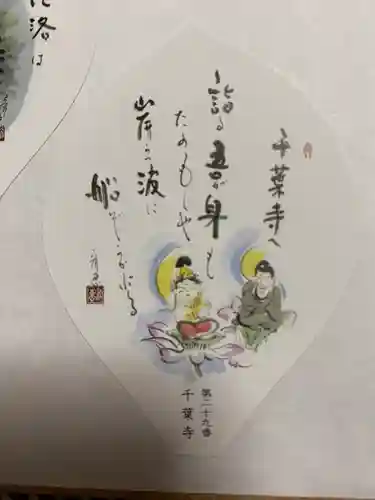 千葉寺へ
詣る吾が身も
たのもしや
岸うつ波に
船ぞうかぶる
第二十九番
千葉寺
洛は